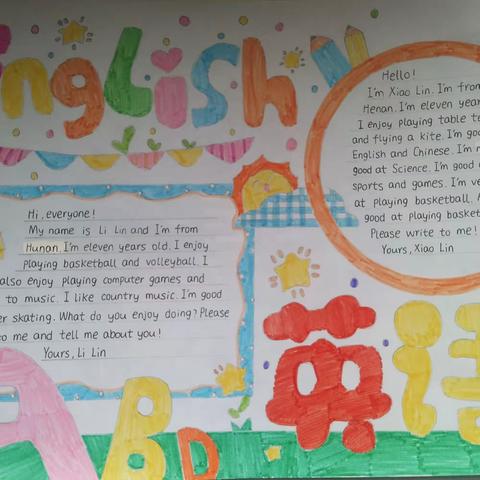 English
Hi, everyone!
My name is Li Lin and I'm from
Hunan. I'm eleven years old. I enjoy
playing basketball and volleyball. I
also enjoy playing computer games and
to music. I like country music. I'm good
skating. What do you enjoy doing? Please
to me and tell me about you!
Yours, Li Lin
Hello!
I'm Xiao Lin. I'm from
Henan. I'm eleven
I enjoy playing table
and flying a kite. I'm
English and Chinese. I'm
good at Science. I'm good
sports and games. I'm
at playing basketball.
good at playing
Please write to me!
Yours, Xiao Lin
A B D
英語